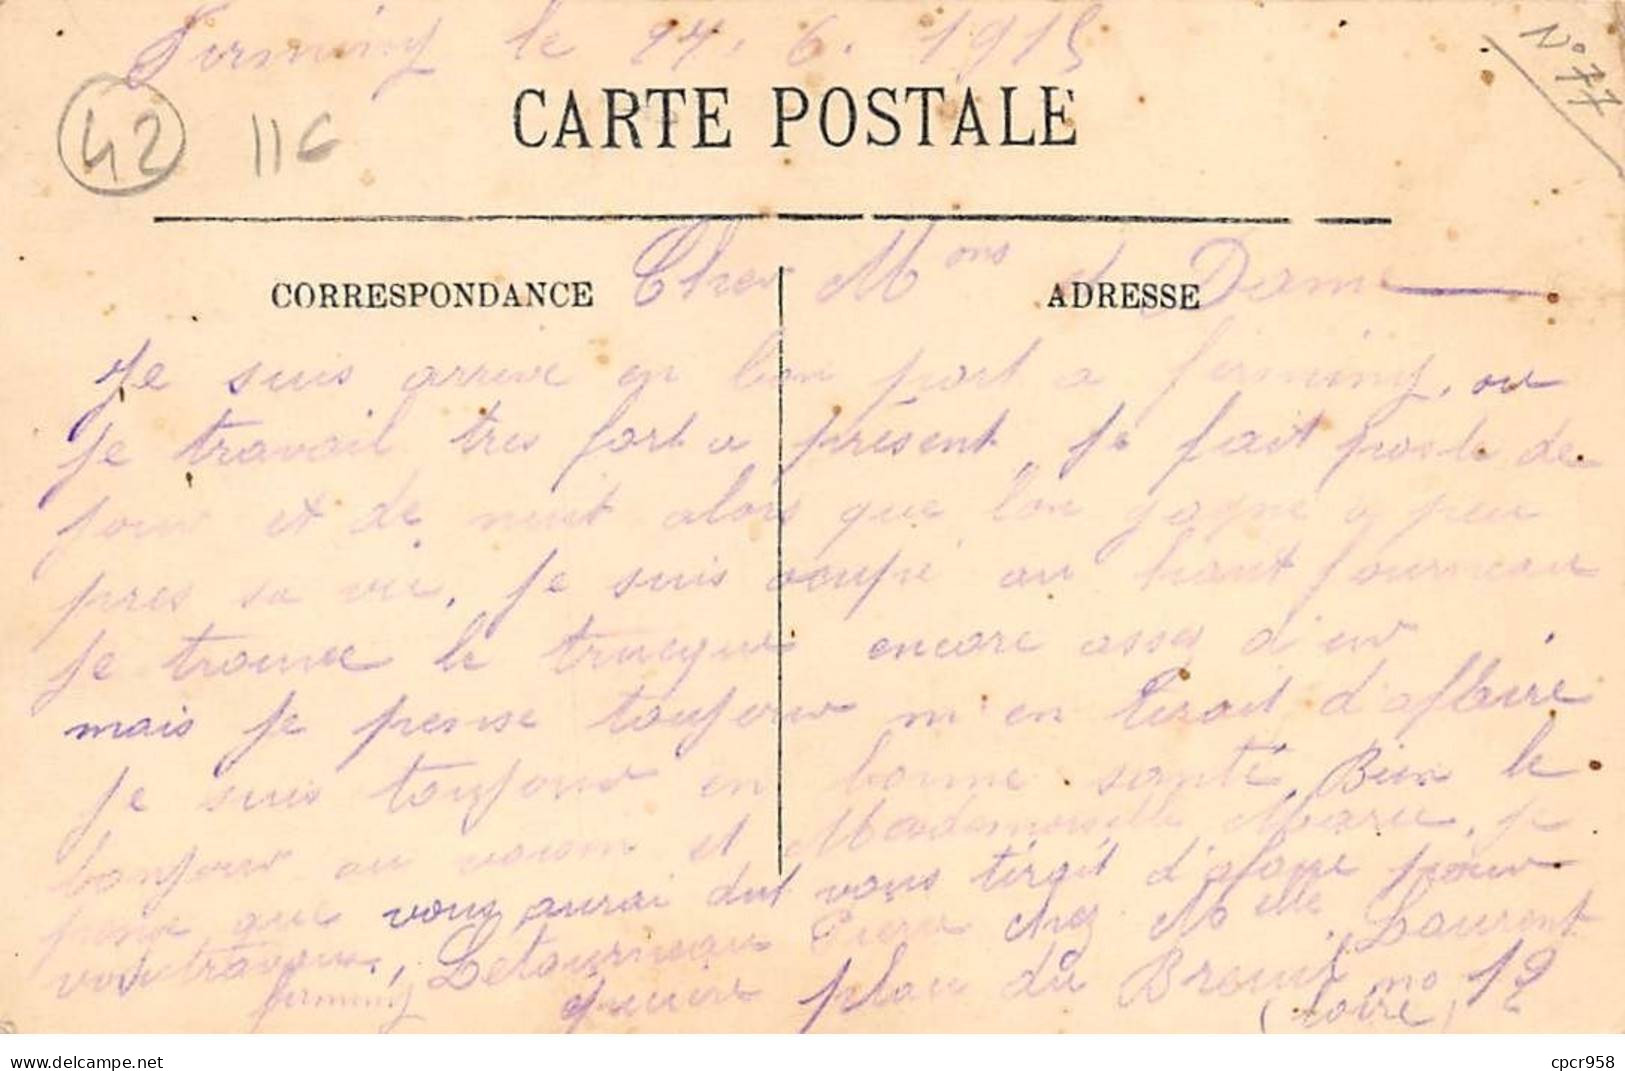 Firminy le 24. 6. 1915
N° 77
42 11C
CARTE POSTALE
CORRESPONDANCE
ADRESSE
Cher Mons et Dame
Je suis arrive en bon port a firminy, ou
je travail tres fort a présent, je fait poste de
jour et de nuit alors que lon gagne a peu
pres sa vie, je suis ocupé au haut fourneau
je trouve le truc que encore assez d'ur
mais je pense toujour m'en tirait d'affaire
je suis toujour en bonne santé, Bien le
bonjour au voisin et Mademoiselle Marie, je
pense que vous aurai dut vous tirait d'afaire pour
vos travaux, Letourneau chez Melle Laurent
plan du Breuil no 12
firminy (Loire)
delcampe.net
cpcr958